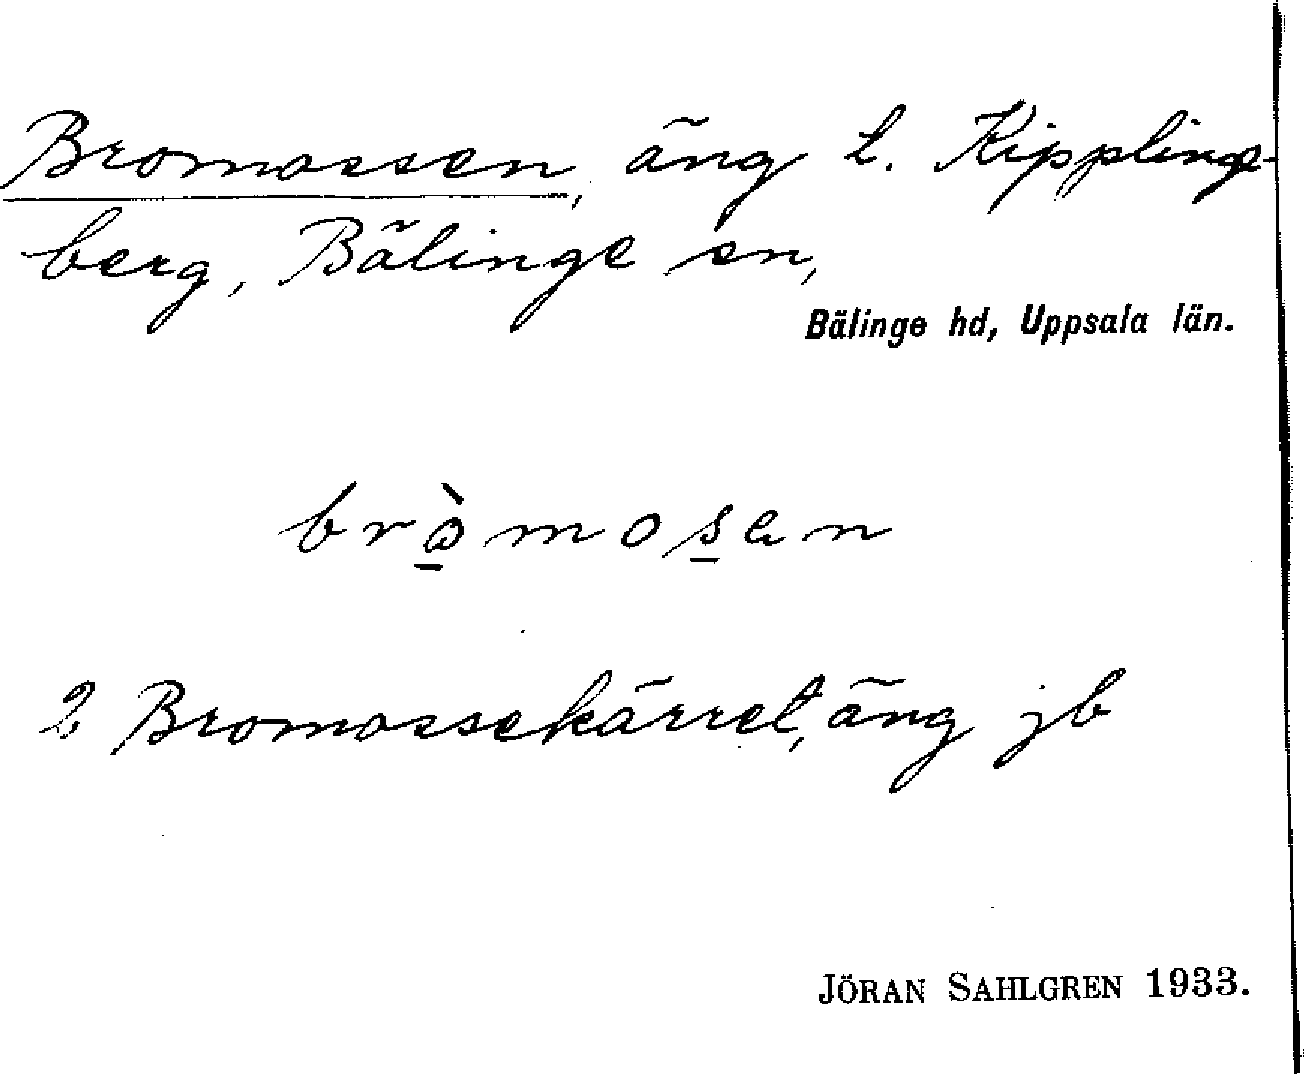 Bromossen, äng t. Kipplings-
berg, Bälinge sn,
Bälinge hd, Uppsala län.
brὼ̱mos̱en
2 Bromossekärret, äng jb
JÖRAN SAHLGREN 1933.